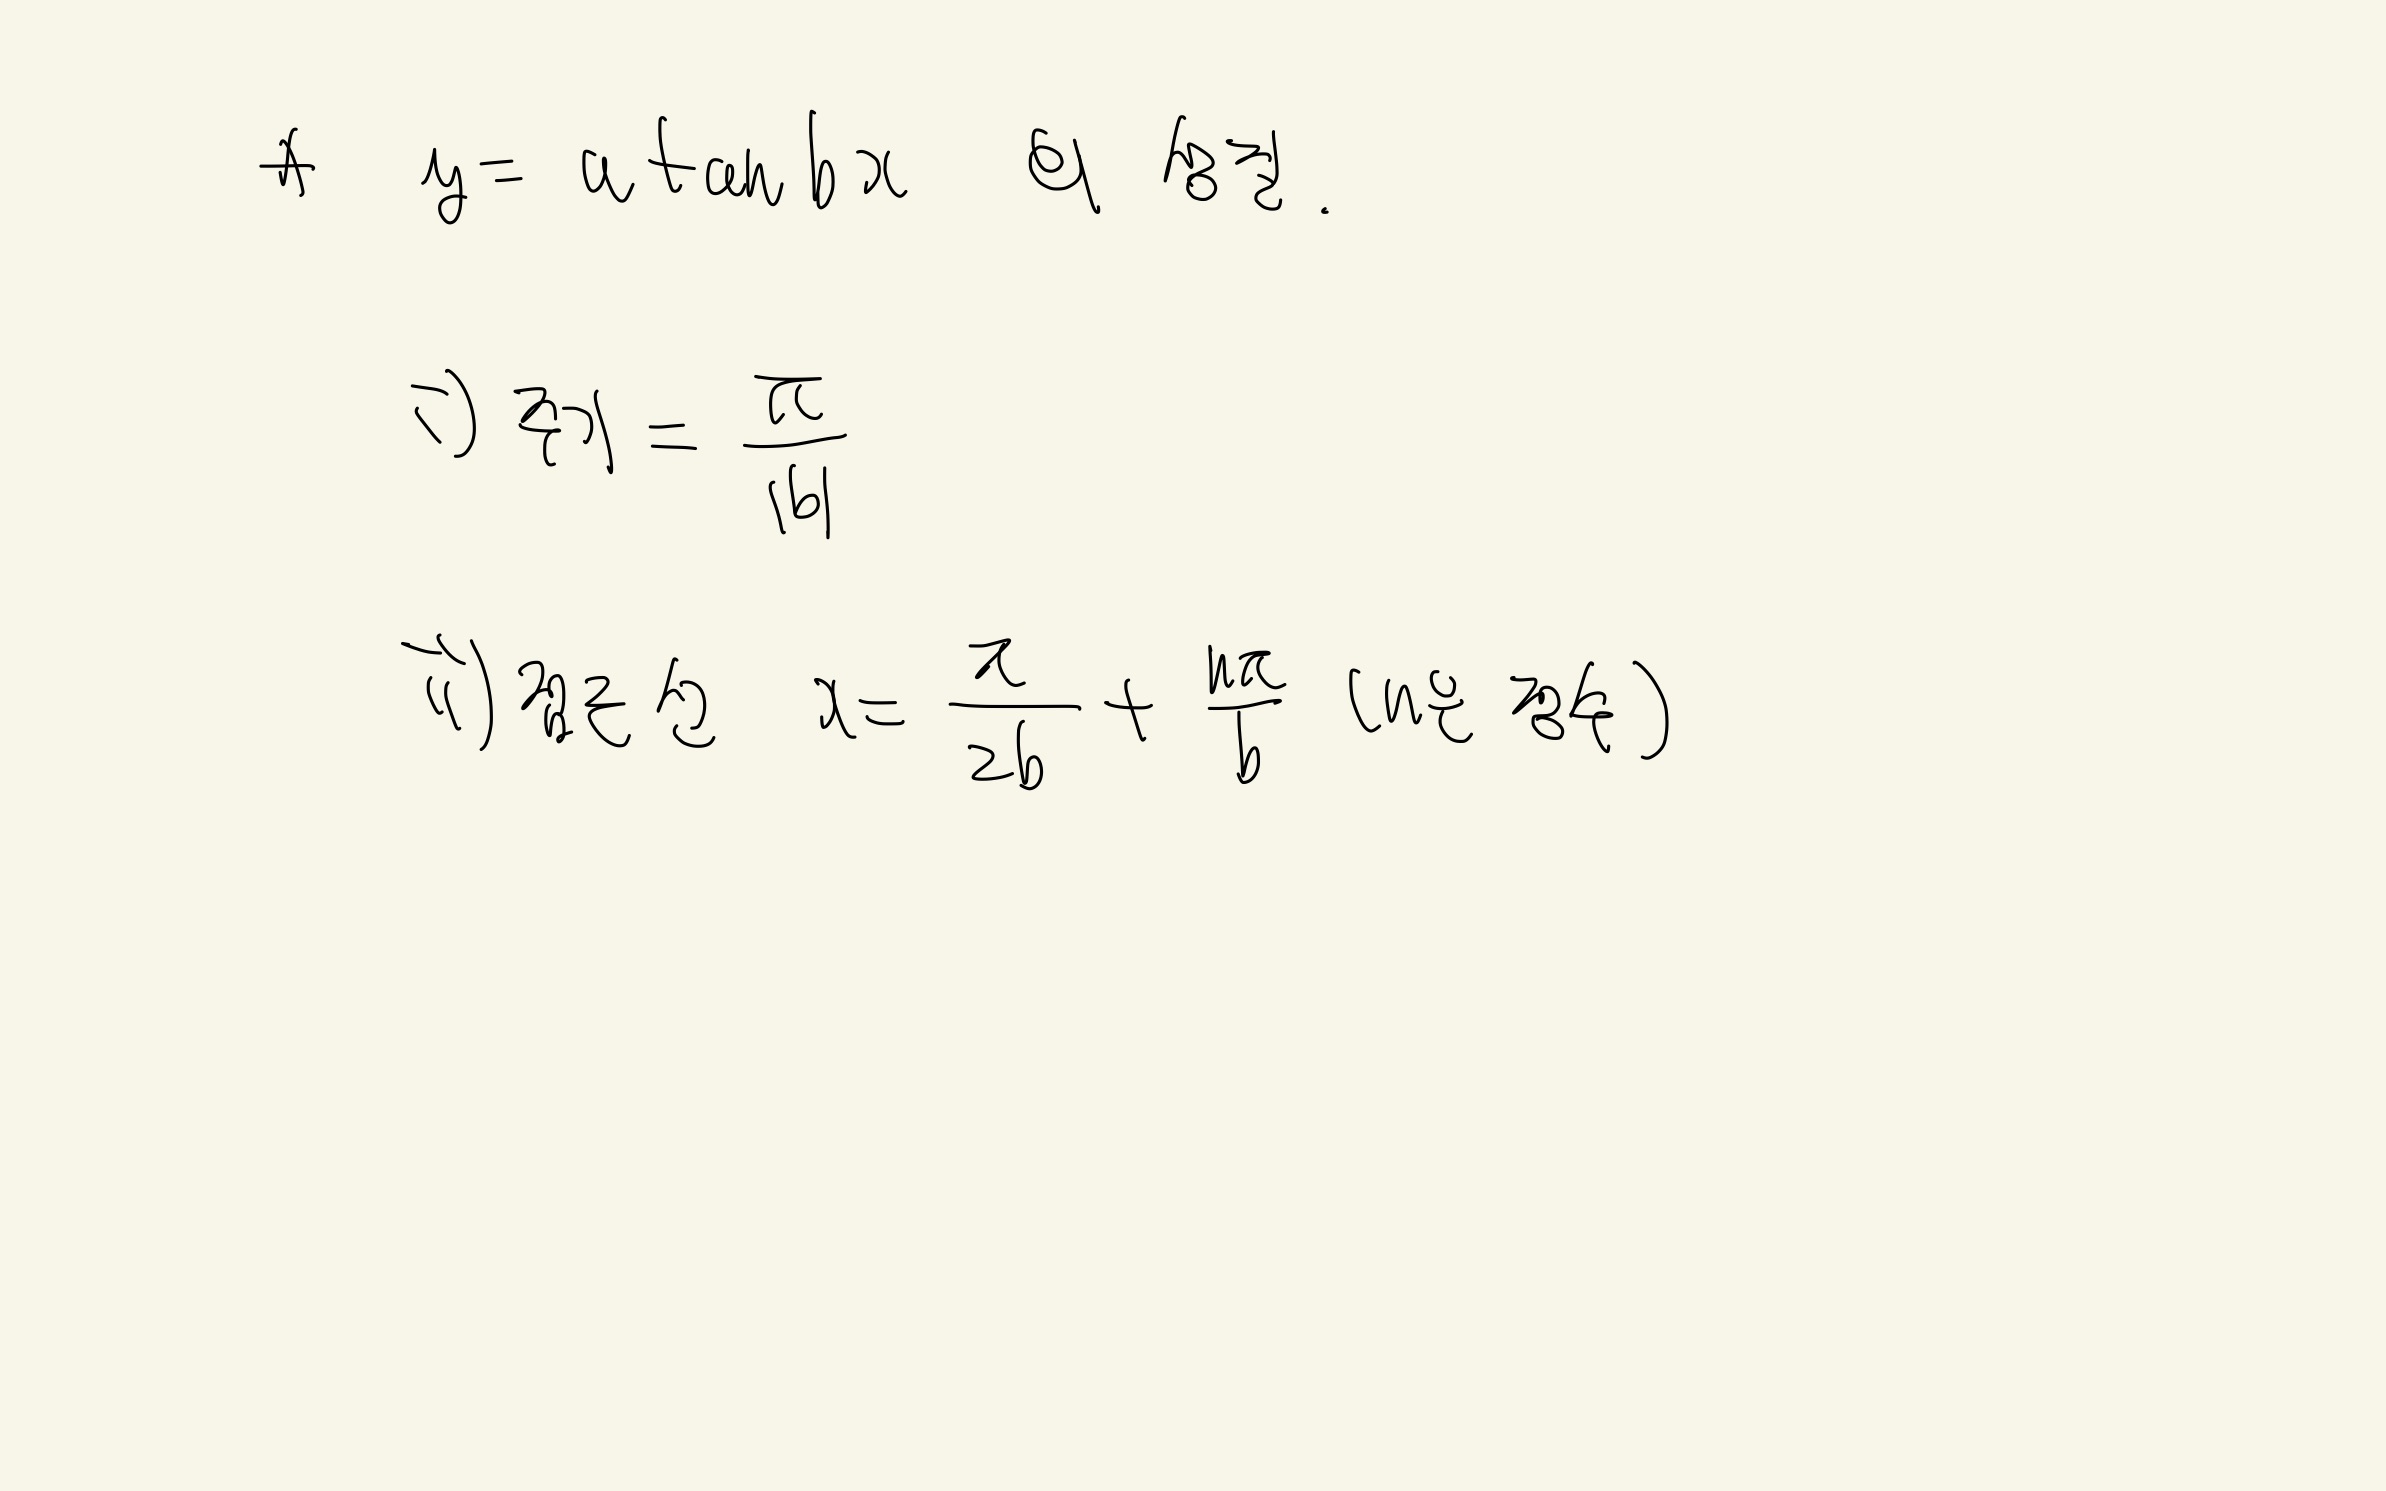 * y = a tan bx 의 성질.
i) 주기 = π/|b|
ii) 점근선 x = π/2b + nπ/b (n은 정수)